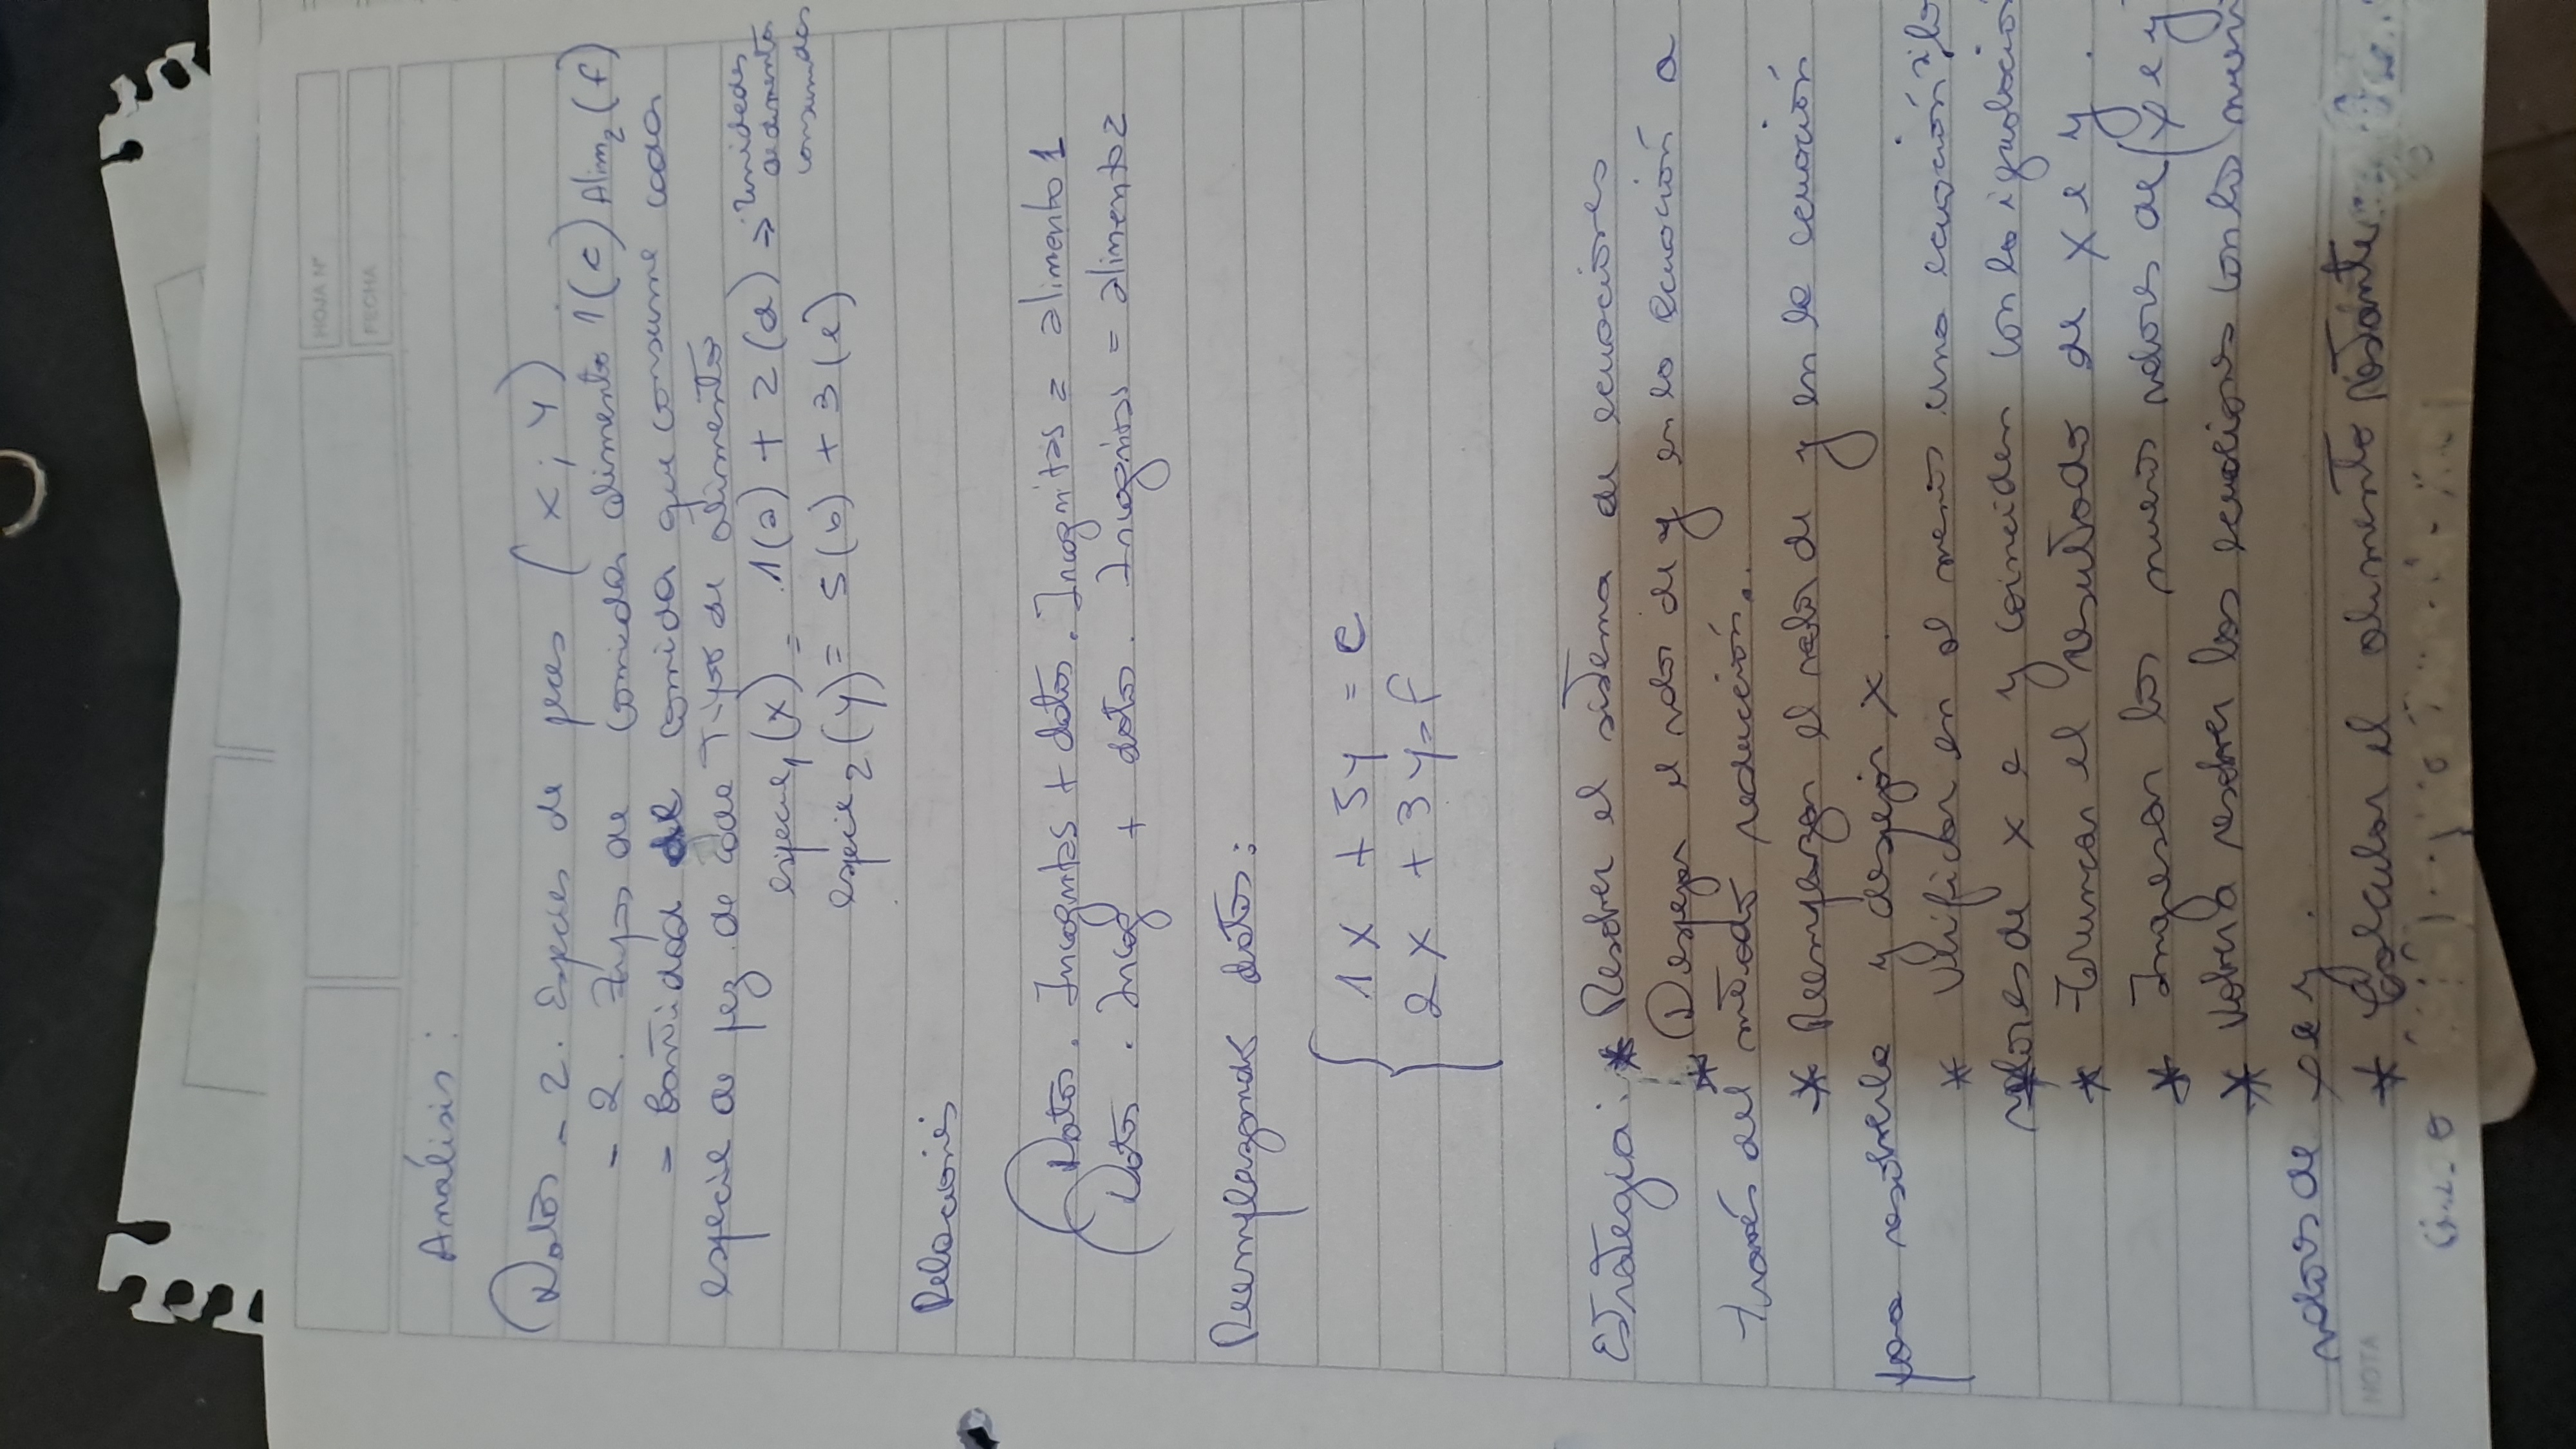 HOJA Nº
FECHA
Análisis:
Datos - 2. Especies de peces (x; y).
- 2. Tipos de comidas alimento 1(c) Alim2(f)
- Cantidad de comida que consume cada
especie de pez de cada Tipo de alimento
especie1(x) = 1(a) + 2(d) → Unidades
de alimentos
consumidas
especie2(y) = 5(b) + 3(e)
Relaciones
Datos . Incognitas + datos . Incognitas = alimento 1
Datos . Incog + datos . Incognitas = alimento 2
Reemplazando datos:
{ 1x + 5y = c
2x + 3y = f
Estrategia: * Resolver el sistema de ecuaciones
* Despejar el valor de y en la ecuación a
través del método reducción..
* Reemplazar el valor de y en la ecuación
para resolverla y despejar x.
* Verificar en al menos una ecuación si lo
valores de x e y coinciden con la igualació
* Truncar el resultado de x e y.
* Ingresar los nuevos valores de (x e y
* Volver a resolver las ecuaciones con los nuev
valores de x e y.
NOTA
* Calcular el alimento restante